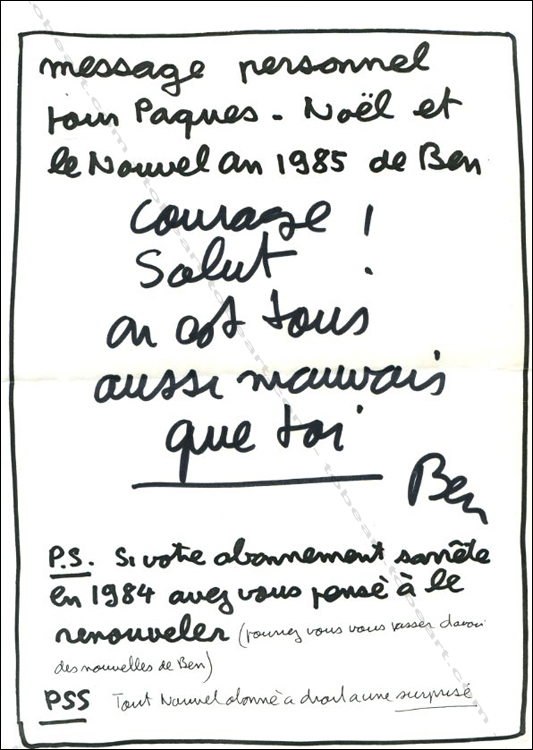 message personnel
pour Paques - Noël et
le Nouvel an 1985 de Ben
courage !
Salut !
on est tous
aussi mauvais
que toi
Ben
P.S. Si votre abonnement sarrête
en 1984 avez vous pensé à le
renouveler (pouvez vous vous passer davoir
des nouvelles de Ben)
PSS Tout Nouvel abonné a droit a une surprise